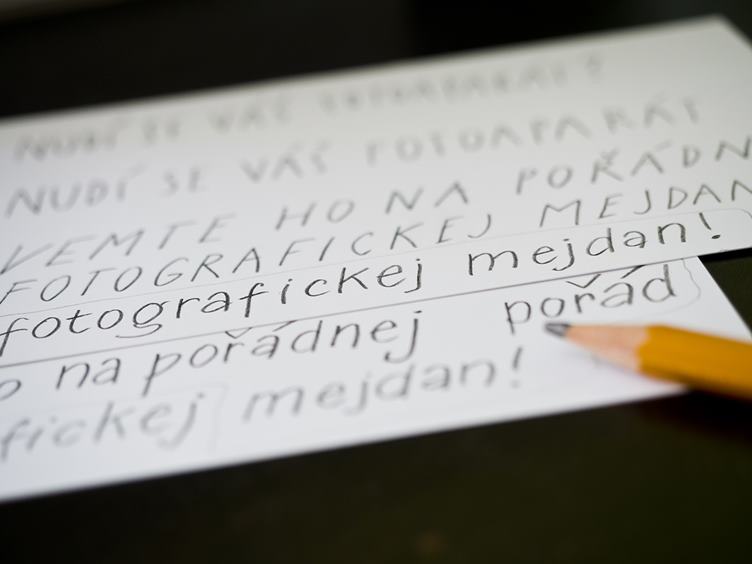 NUDÍ SE VÁŠ FOTOAPARÁT?
NUDÍ SE VÁŠ FOTOAPARÁT
VEMTE HO NA POŘÁDN
FOTOGRAFICKEJ MEJDAN
fotografickej mejdan!
o na pořádnej pořád
fickej mejdan!